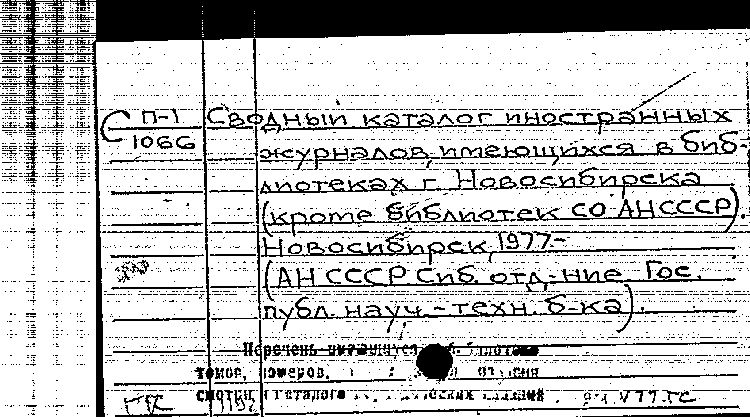 С П-1 Сводный каталог иностранных
1066
журналов, имеющихся в биб-
лиотеках г. Новосибирска
(кроме библиотек СО АН СССР).
Новосибирск, 1977-
(АН СССР. Сиб. отд-ние. Гос.
публ. науч.-техн. б-ка).
Перечень
томов, номеров,
смотри каталоге